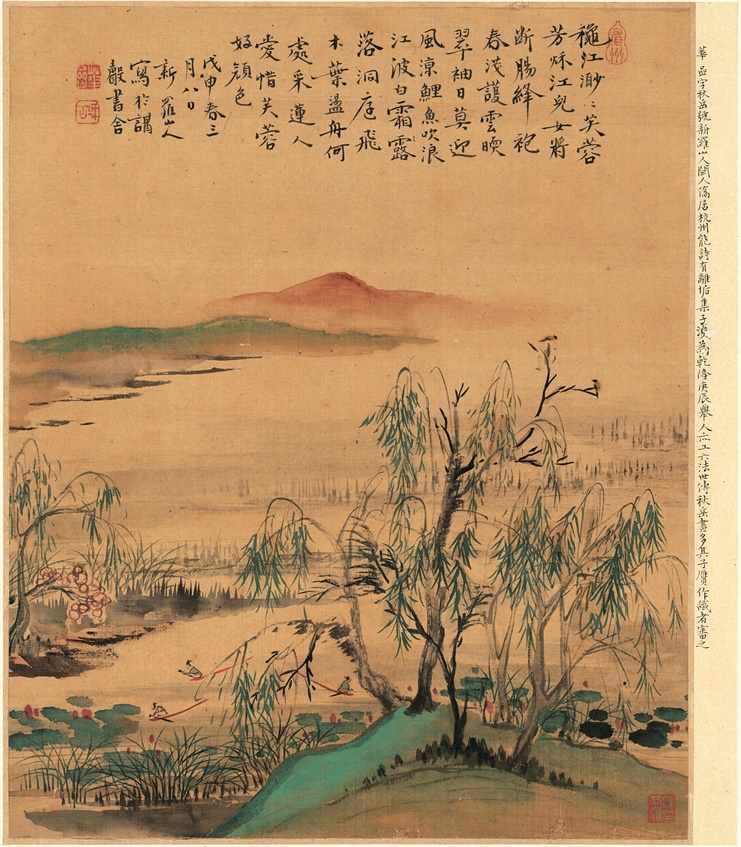 穐江渺〻芙蓉
芳秌江兒女將
断腸絳袍
春淺護雲暖
翠袖日莫迎
風涼鯉魚吹浪
江波白霜露
落洞庭飛
木葉盪舟何
處采蓮人
愛惜芙蓉
好顔色
戊申春三
月八日
新羅山人
寫於講
聲書舍
華嵒字秋岳號新羅山人閩人僑居杭州能詩有離垢集子浚為乾隆庚辰舉人亦工六法世傳秋岳畫多其子贋作識者審之